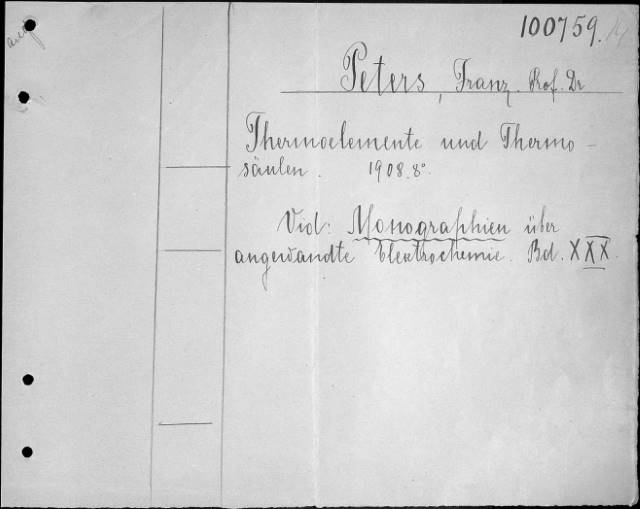 100759.
Peters, Franz. Prof. Dr
Thermoelemente und Thermo-
säulen. 1908. 8°.
Vid: Monographien über
angewandte Elektrochemie. Bd. XXX.